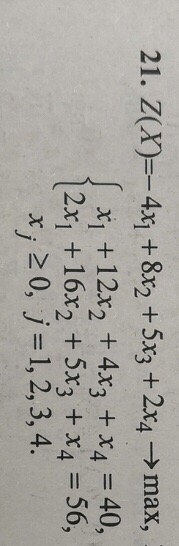 21. Z(X)=−4x₁ + 8x₂ + 5x₃ + 2x₄ → max,
{ x₁ + 12x₂ + 4x₃ + x₄ = 40,
2x₁ + 16x₂ + 5x₃ + x₄ = 56,
xⱼ ≥ 0, j = 1, 2, 3, 4.